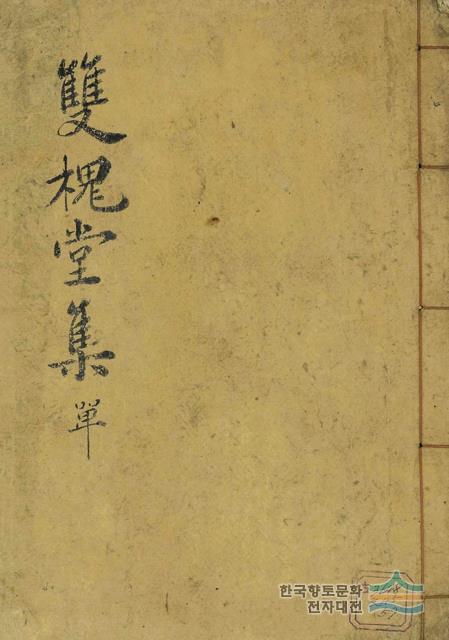 雙槐堂集 單
한국향토문화
전자대전